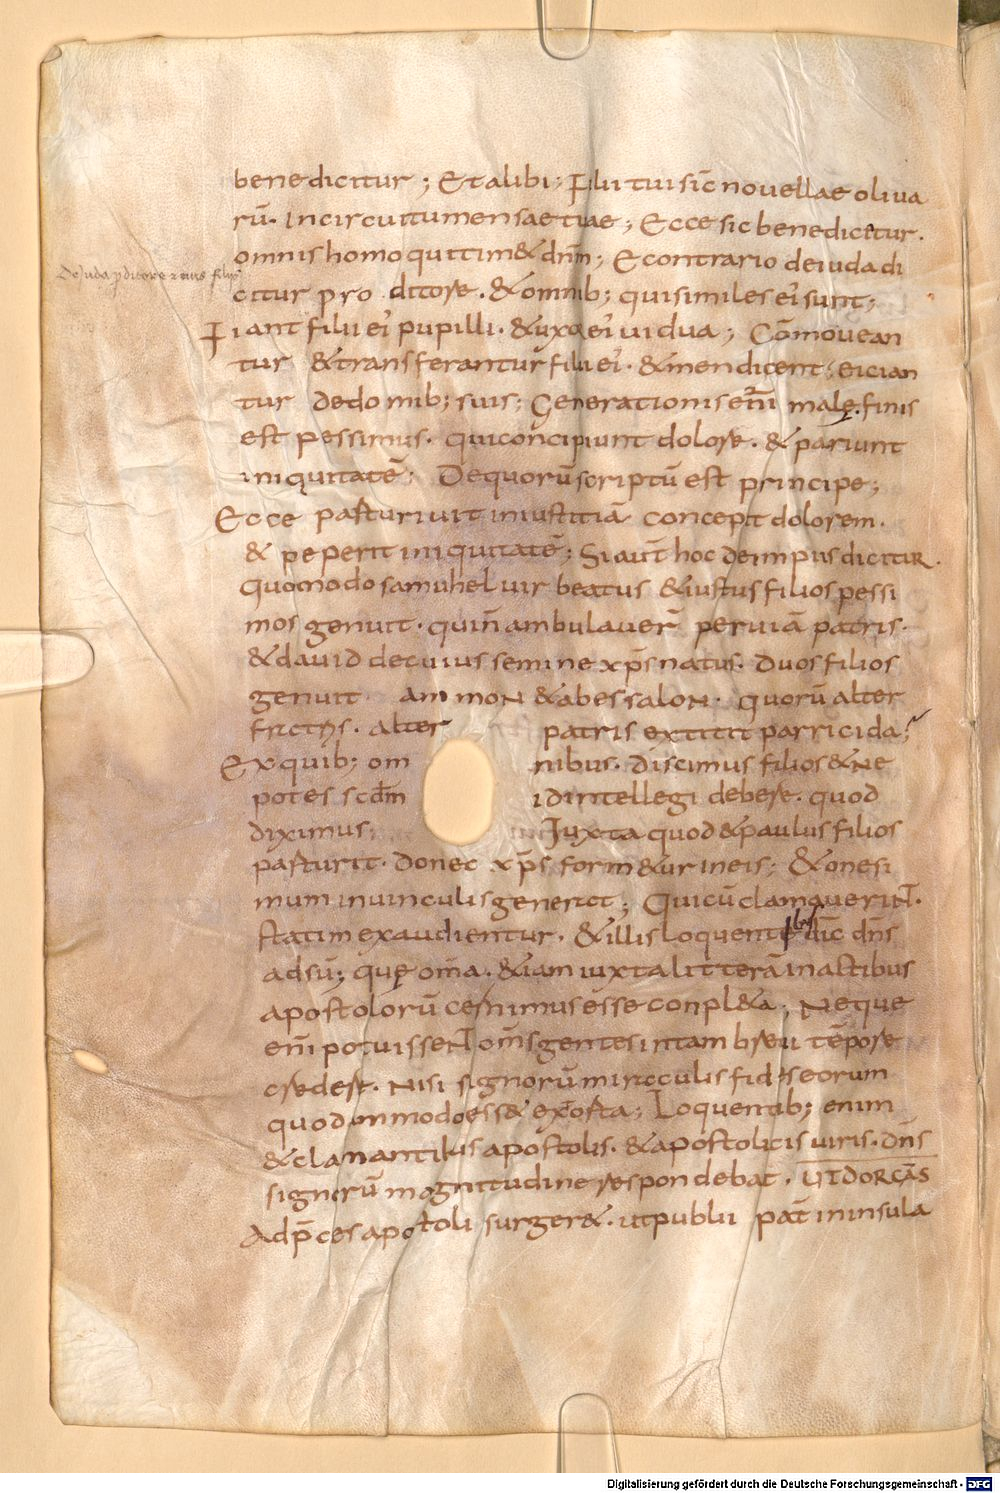 benedicitur; Et alibi; Filii tui sic̄ novellae oliva
rū. in circuitu mensae tuae; Ecce sic benedicetur.
omnis homo qui tim& dn̄m; E contrario de iuda di
De Juda proditore et eius filiis
citur pro ditore. & omnib; qui similes ei sunt;
Fiant filii ei' pupilli. & uxor ei' vidua; Cōmovean
tur & transferantur filii ei'. & mendicent; eician
tur de domib; suis; Generationis enī malę. finis
est pessimus. qui concipiunt dolore. & pariunt
iniquitatē; De quorū scriptū est principe;
Ecce parturivit iniustitiā concepit dolorem.
& peperit iniquitatē; Si aut̄ hoc de impiis dicitur.
quomodo samuhel vir beatus & iustus filios pessi
mos genuit. qui n̄ ambulaver̄ per viā patris.
& david de cuius semine xp̄s natus. duos filios
genuit ammon & abessalon. quorū alter
alter patris extitit parricida;
Ex quib; om nibus. discimus filios & ne
potes scdm̄ id intellegi debere. quod
diximus; Juxta quod & paulus filios
parturit. donec xp̄s form&ur in eis; & onesi
mum in vinculis generat; Qui cū clamaverint.
statim exaudientur. & illis loquentibus dic̄ dn̄s
adsū; quę om̄a. & iam iuxta litterā in actibus
apostolorū cernimus esse conpl&a; Neque
enī potuissent om̄s gentes in tam brevi tēpore
credere. nisi signorū miraculis fides eorum
quodammodo ess& extorta; Loquentib; enim
& clamantibus apostolis. & apostolicis viris. dn̄s
signorū magnitudine respondebat. ut dorcas
Ad p̄ces apostoli surger&. ut publii pat̄ in insula
Digitalisierung gefördert durch die Deutsche Forschungsgemeinschaft - DFG